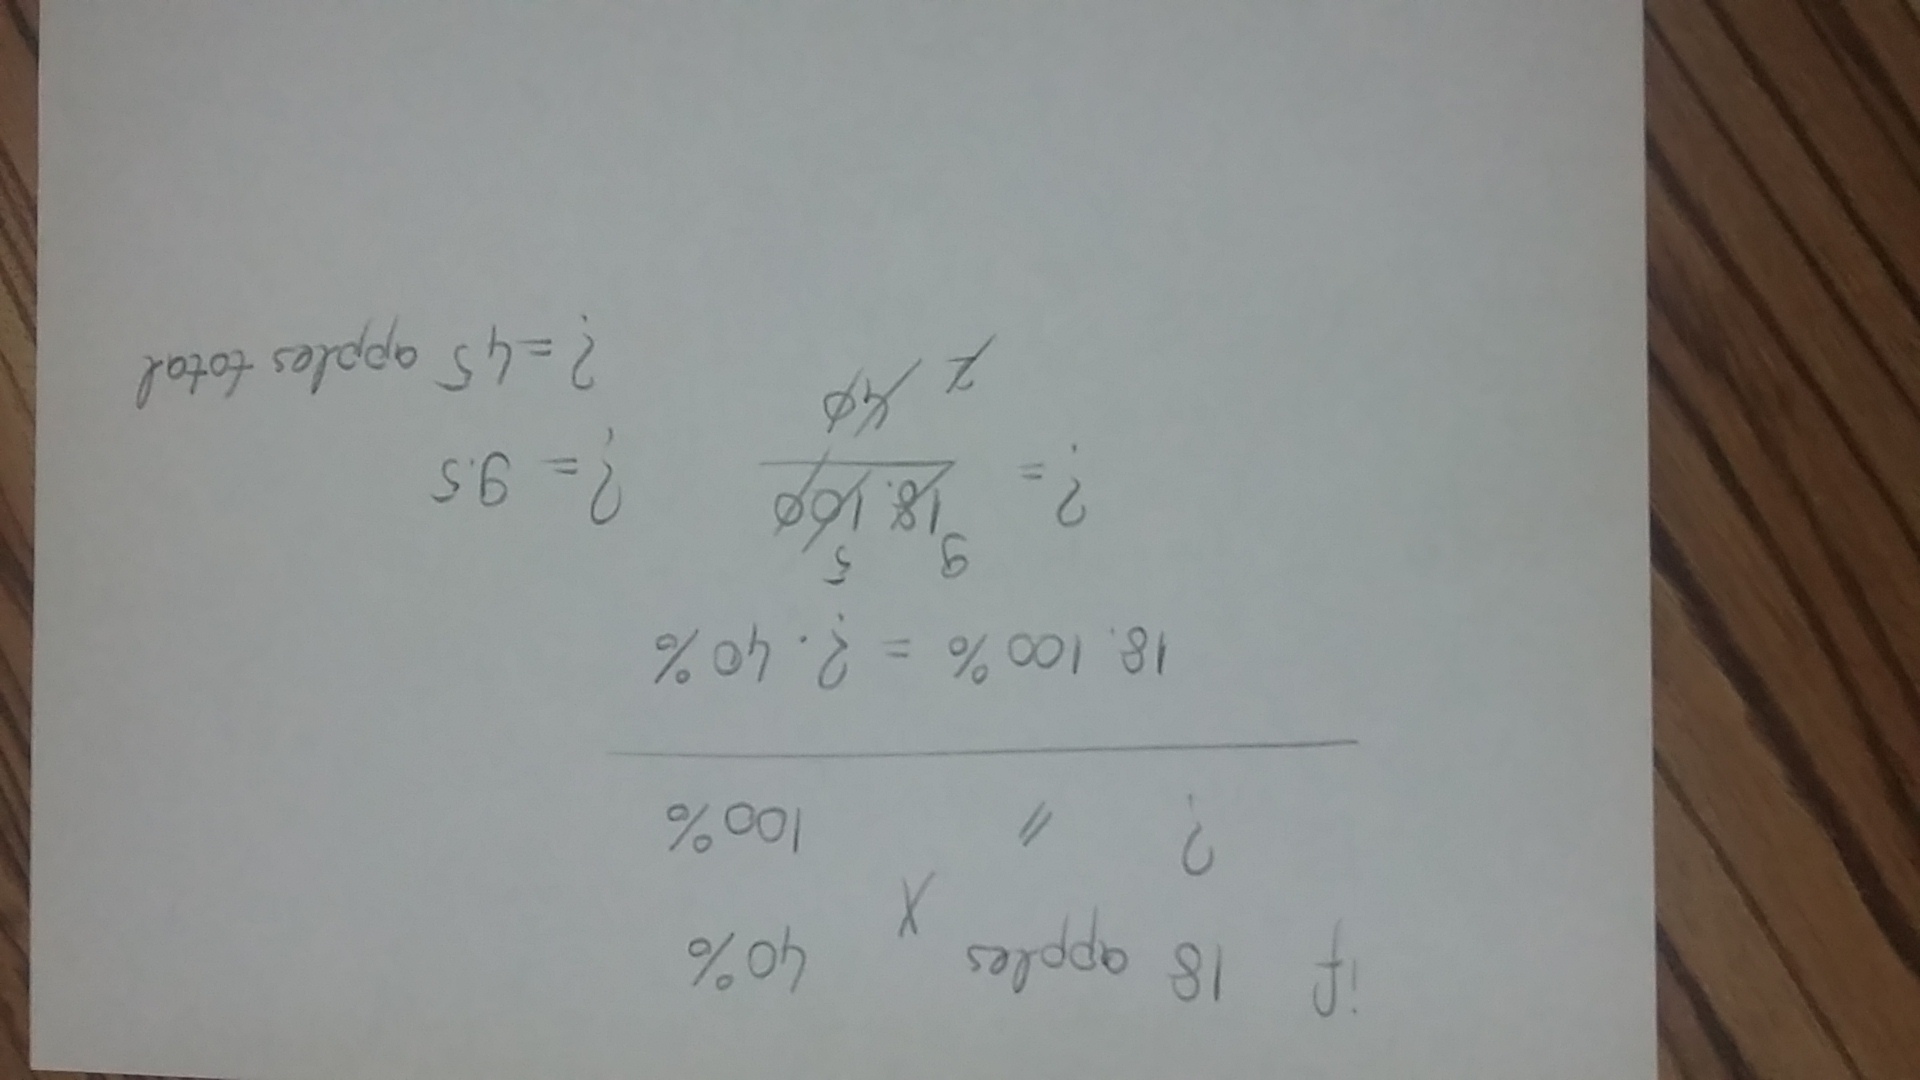 if 18 apples 40%
X
? " 100%
18. 100% = ? . 40%
9 5
? = 18.100 ? = 9.5
40 2 ? = 45 apples total